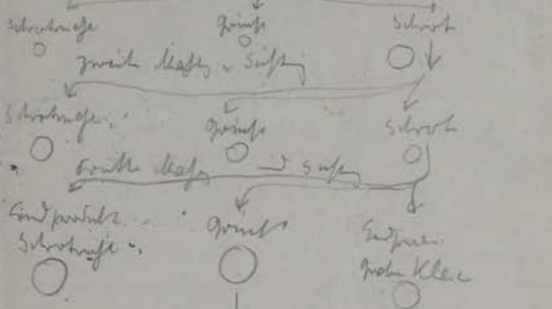 Schrotmehl Gries Schrot
zweite Mahlg u. Sichtg
Schrotmehl Gries Schrot
dritte Mahlg und Sichtg
Endprodukt Gries
Schrotmehl
grobe Kleie